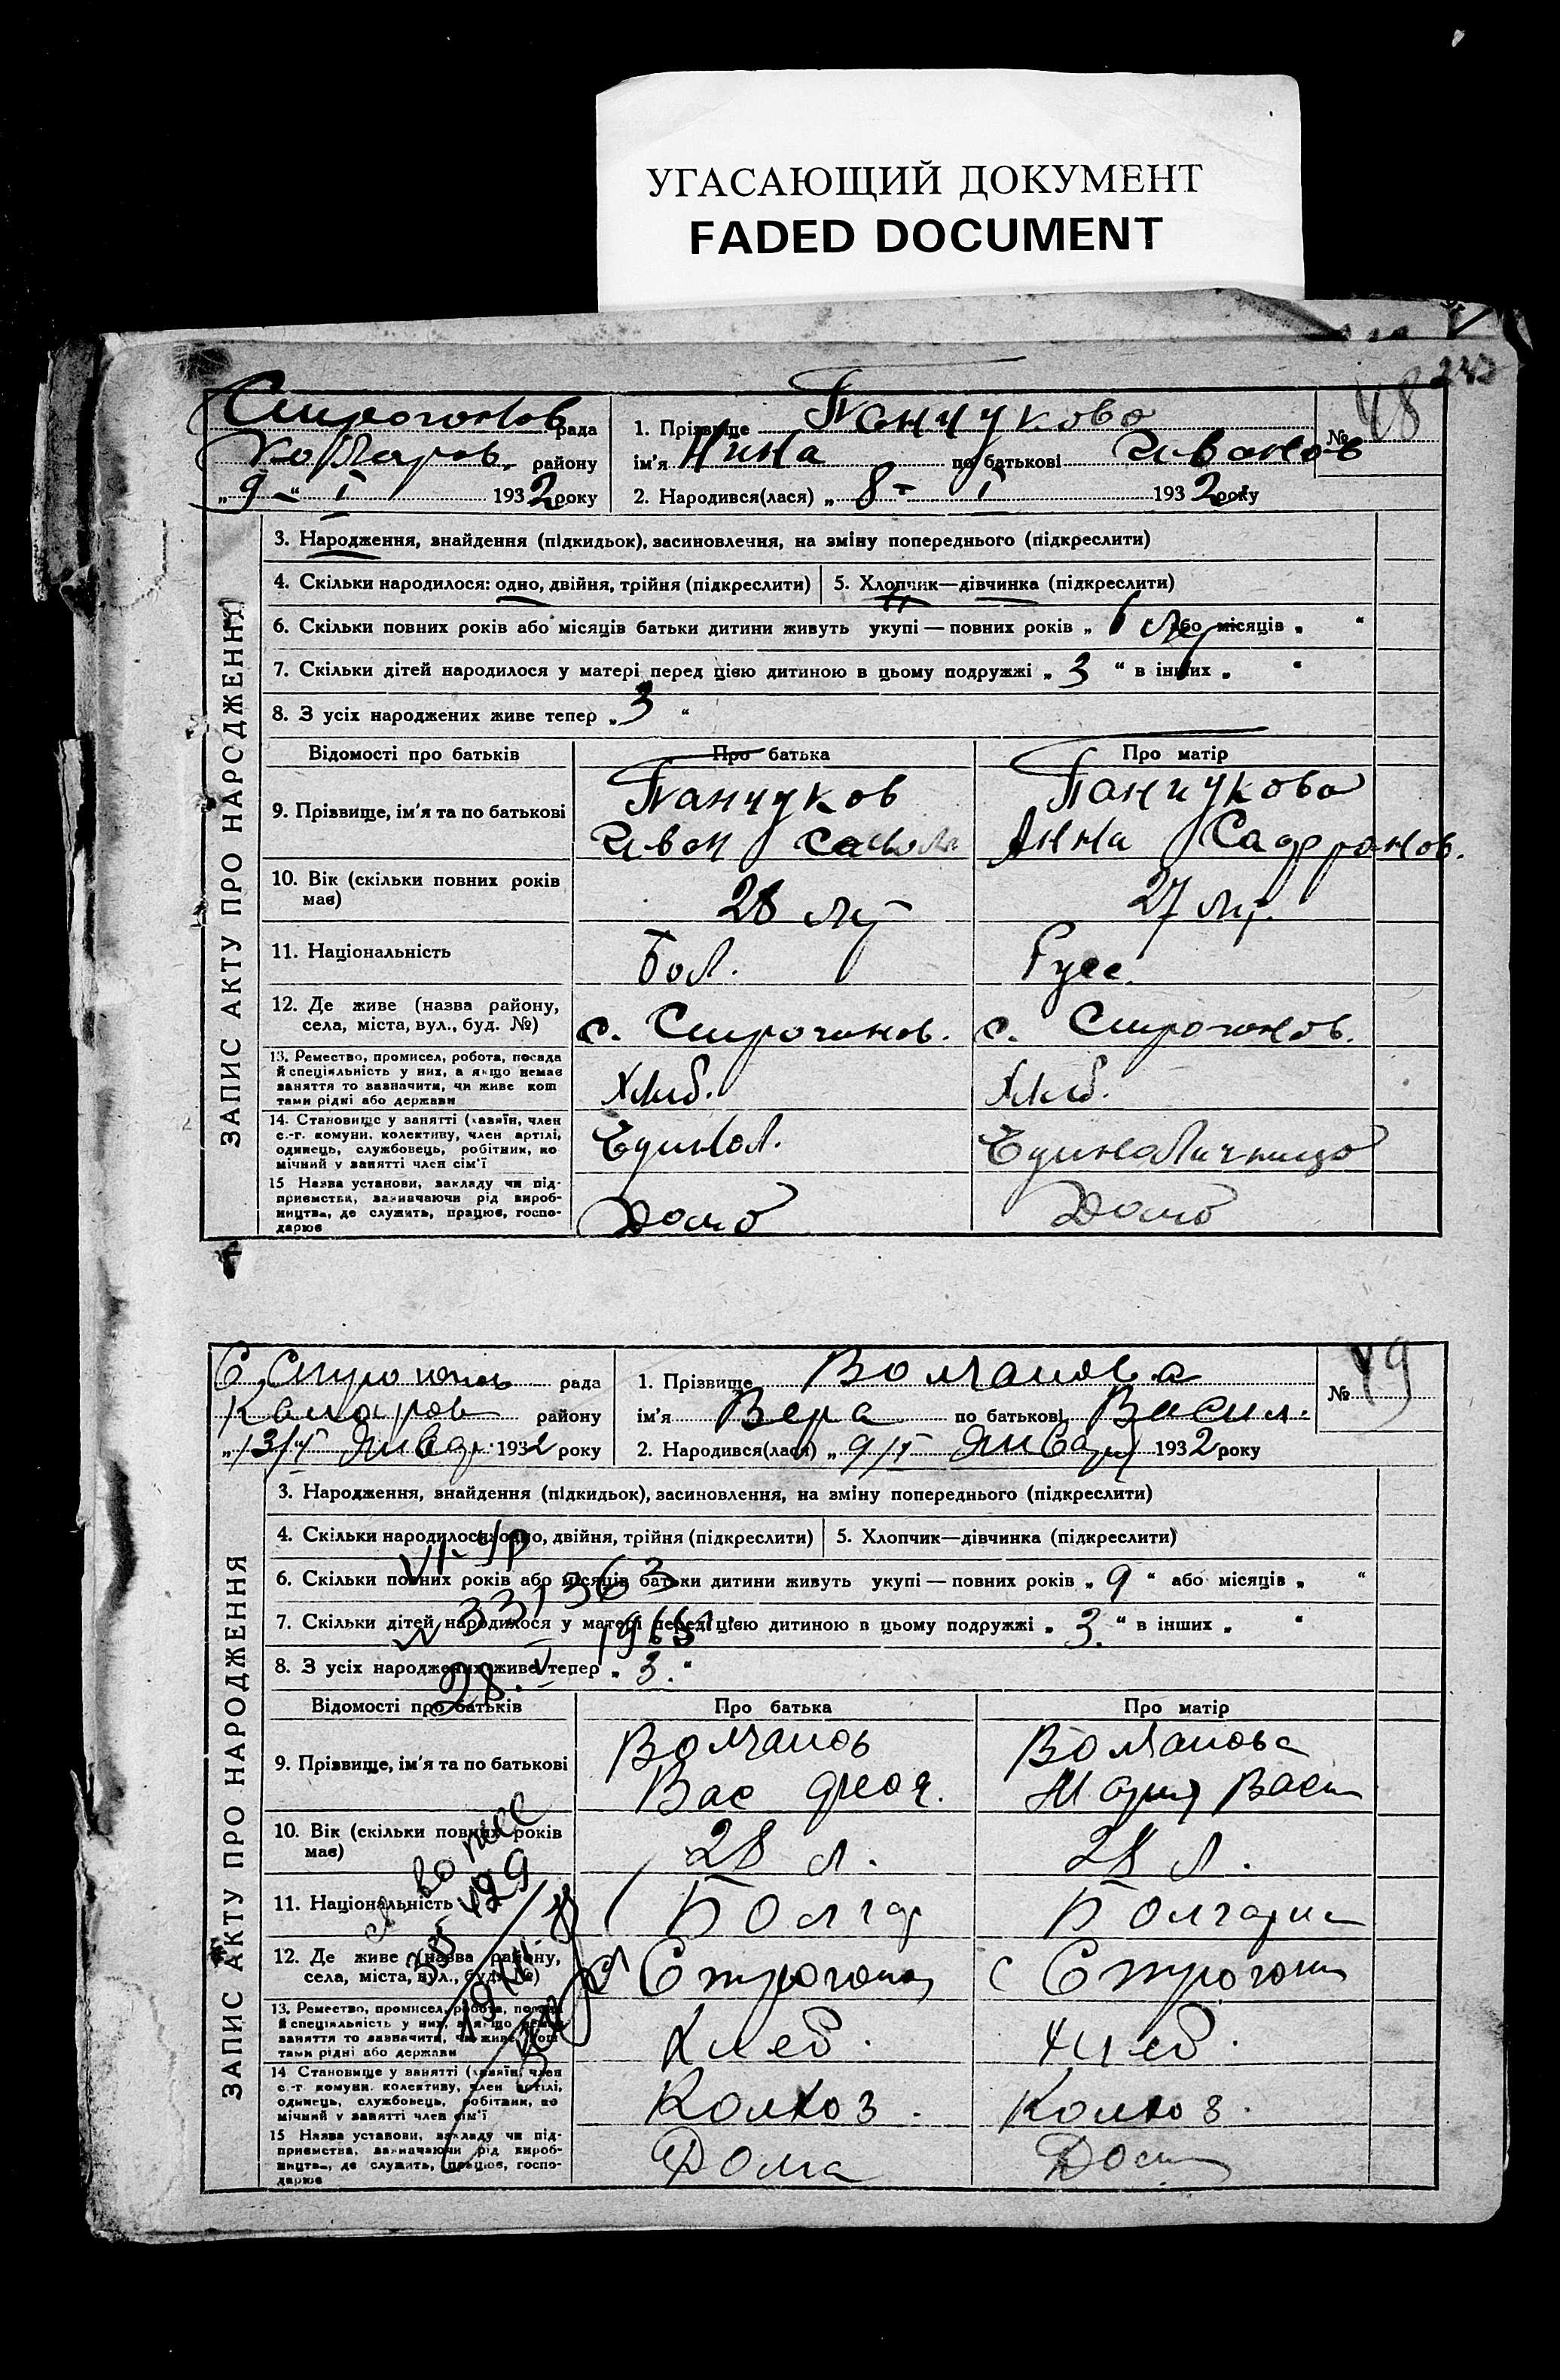 УГАСАЮЩИЙ ДОКУМЕНТ
FADED DOCUMENT
48
Строгонов рада
район у
„ 9 “ I 1932 року
1. Прізвище Панчукова
ім'я Нина по батькові Иванов
2. Народився(лася) „ 8 - I 1932 року
№
ЗАПИС АКТУ ПРО НАРОДЖЕННЯ
3. Народження, знайдення (підкидьок), засиновлення, на зміну попереднього (підкреслити)
4. Скільки народилося: одно, двійня, трійня (підкреслити) 5. Хлопчик—дівчинка (підкреслити)
6. Скільки повних років або місяців батьки дитини живуть укупі — повних років „ 6 лет або місяців „ “
7. Скільки дітей народилося у матері перед цією дитиною в цьому подружжі „ 3 “ в інших „ “
8. З усіх народжених живе тепер „ 3 “
Відомості про батьків Про батька Про матір
9. Прізвище, ім'я та по батькові Панчуков Панчукова
Иван Анна Сафронов.
10. Вік (скільки повних років має) 28 лет 27 лет
11. Національність Бол. Русс.
12. Де живе (назва району, села, міста, вул., буд. №) с. Строгонов. с. Строгонов.
13. Ремество, промисел, робота, посада
й спеціяльність у них, а якщо немає
заняття то зазначити, чи живе кош
тами рідні або держави Хлиб. Хлиб.
14. Становище у занятті (хазяїн, член
с.-г. комуни, колективу, член артілі,
одинець, службовець, робітник, по
мічний у занятті член сім'ї Единол. Единоличница
15 Назва установи, закладу чи під-
приємства, зазначаючи рід вироб-
ництва, де служить, працює, госпо-
дарює Дома Дома
49
С. Строгонов рада
району
„13/I Январ. 1932 року
1. Прізвище Волчанова
ім'я Вера по батькові Васил.
2. Народився(лася) „ 9/I Январ 1932 року
№
ЗАПИС АКТУ ПРО НАРОДЖЕННЯ
3. Народження, знайдення (підкидьок), засиновлення, на зміну попереднього (підкреслити)
4. Скільки народилося: одно, двійня, трійня (підкреслити) 5. Хлопчик—дівчинка (підкреслити)
6. Скільки повних років або місяців батьки дитини живуть укупі — повних років „ 9 “ або місяців „ “
7. Скільки дітей народилося у матері перед цією дитиною в цьому подружжі „ 3. “ в інших „ “
8. З усіх народжених живе тепер „ 3. “
Відомості про батьків Про батька Про матір
9. Прізвище, ім'я та по батькові Волчановъ Волчанова
Вас Феод. Мария Васи
10. Вік (скільки повних років має) 28 л. 28 л.
11. Національність Болгар Болгарка
12. Де живе (назва району, села, міста, вул., буд. №) с Строгонов с Строгонов
13. Ремество, промисел, робота, посада
й спеціяльність у них, а якщо немає
заняття то зазначити, чи живе кош
тами рідні або держави Хлеб. Хлеб.
14 Становище у занятті (хазяїн, член
с.-г. комуни, колективу, член артілі,
одинець, службовець, робітник, по
мічний у занятті член сім'ї Колхоз. Колхоз.
15 Назва установи, закладу чи під-
приємства, зазначаючи рід вироб-
ництва, де служить, працює, госпо-
дарює Дома Дома